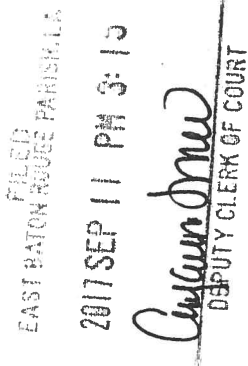 FILED
EAST BATON ROUGE PARISH, LA
2017 SEP 11 PM 3:13
DEPUTY CLERK OF COURT